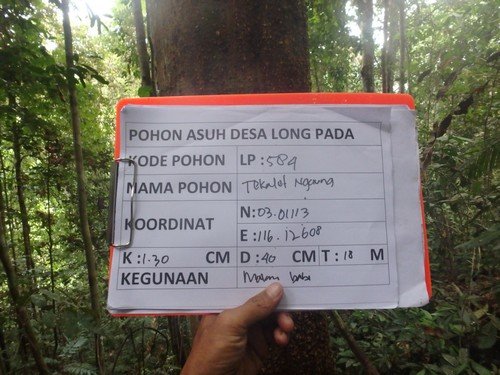 POHON ASUH DESA LONG PADA
KODE POHON LP : 584
NAMA POHON Tekalet Ngaung
KOORDINAT N: 03.01113
E : 116.12608
K : 1.30 CM D : 40 CM T : 18 M
KEGUNAAN babi